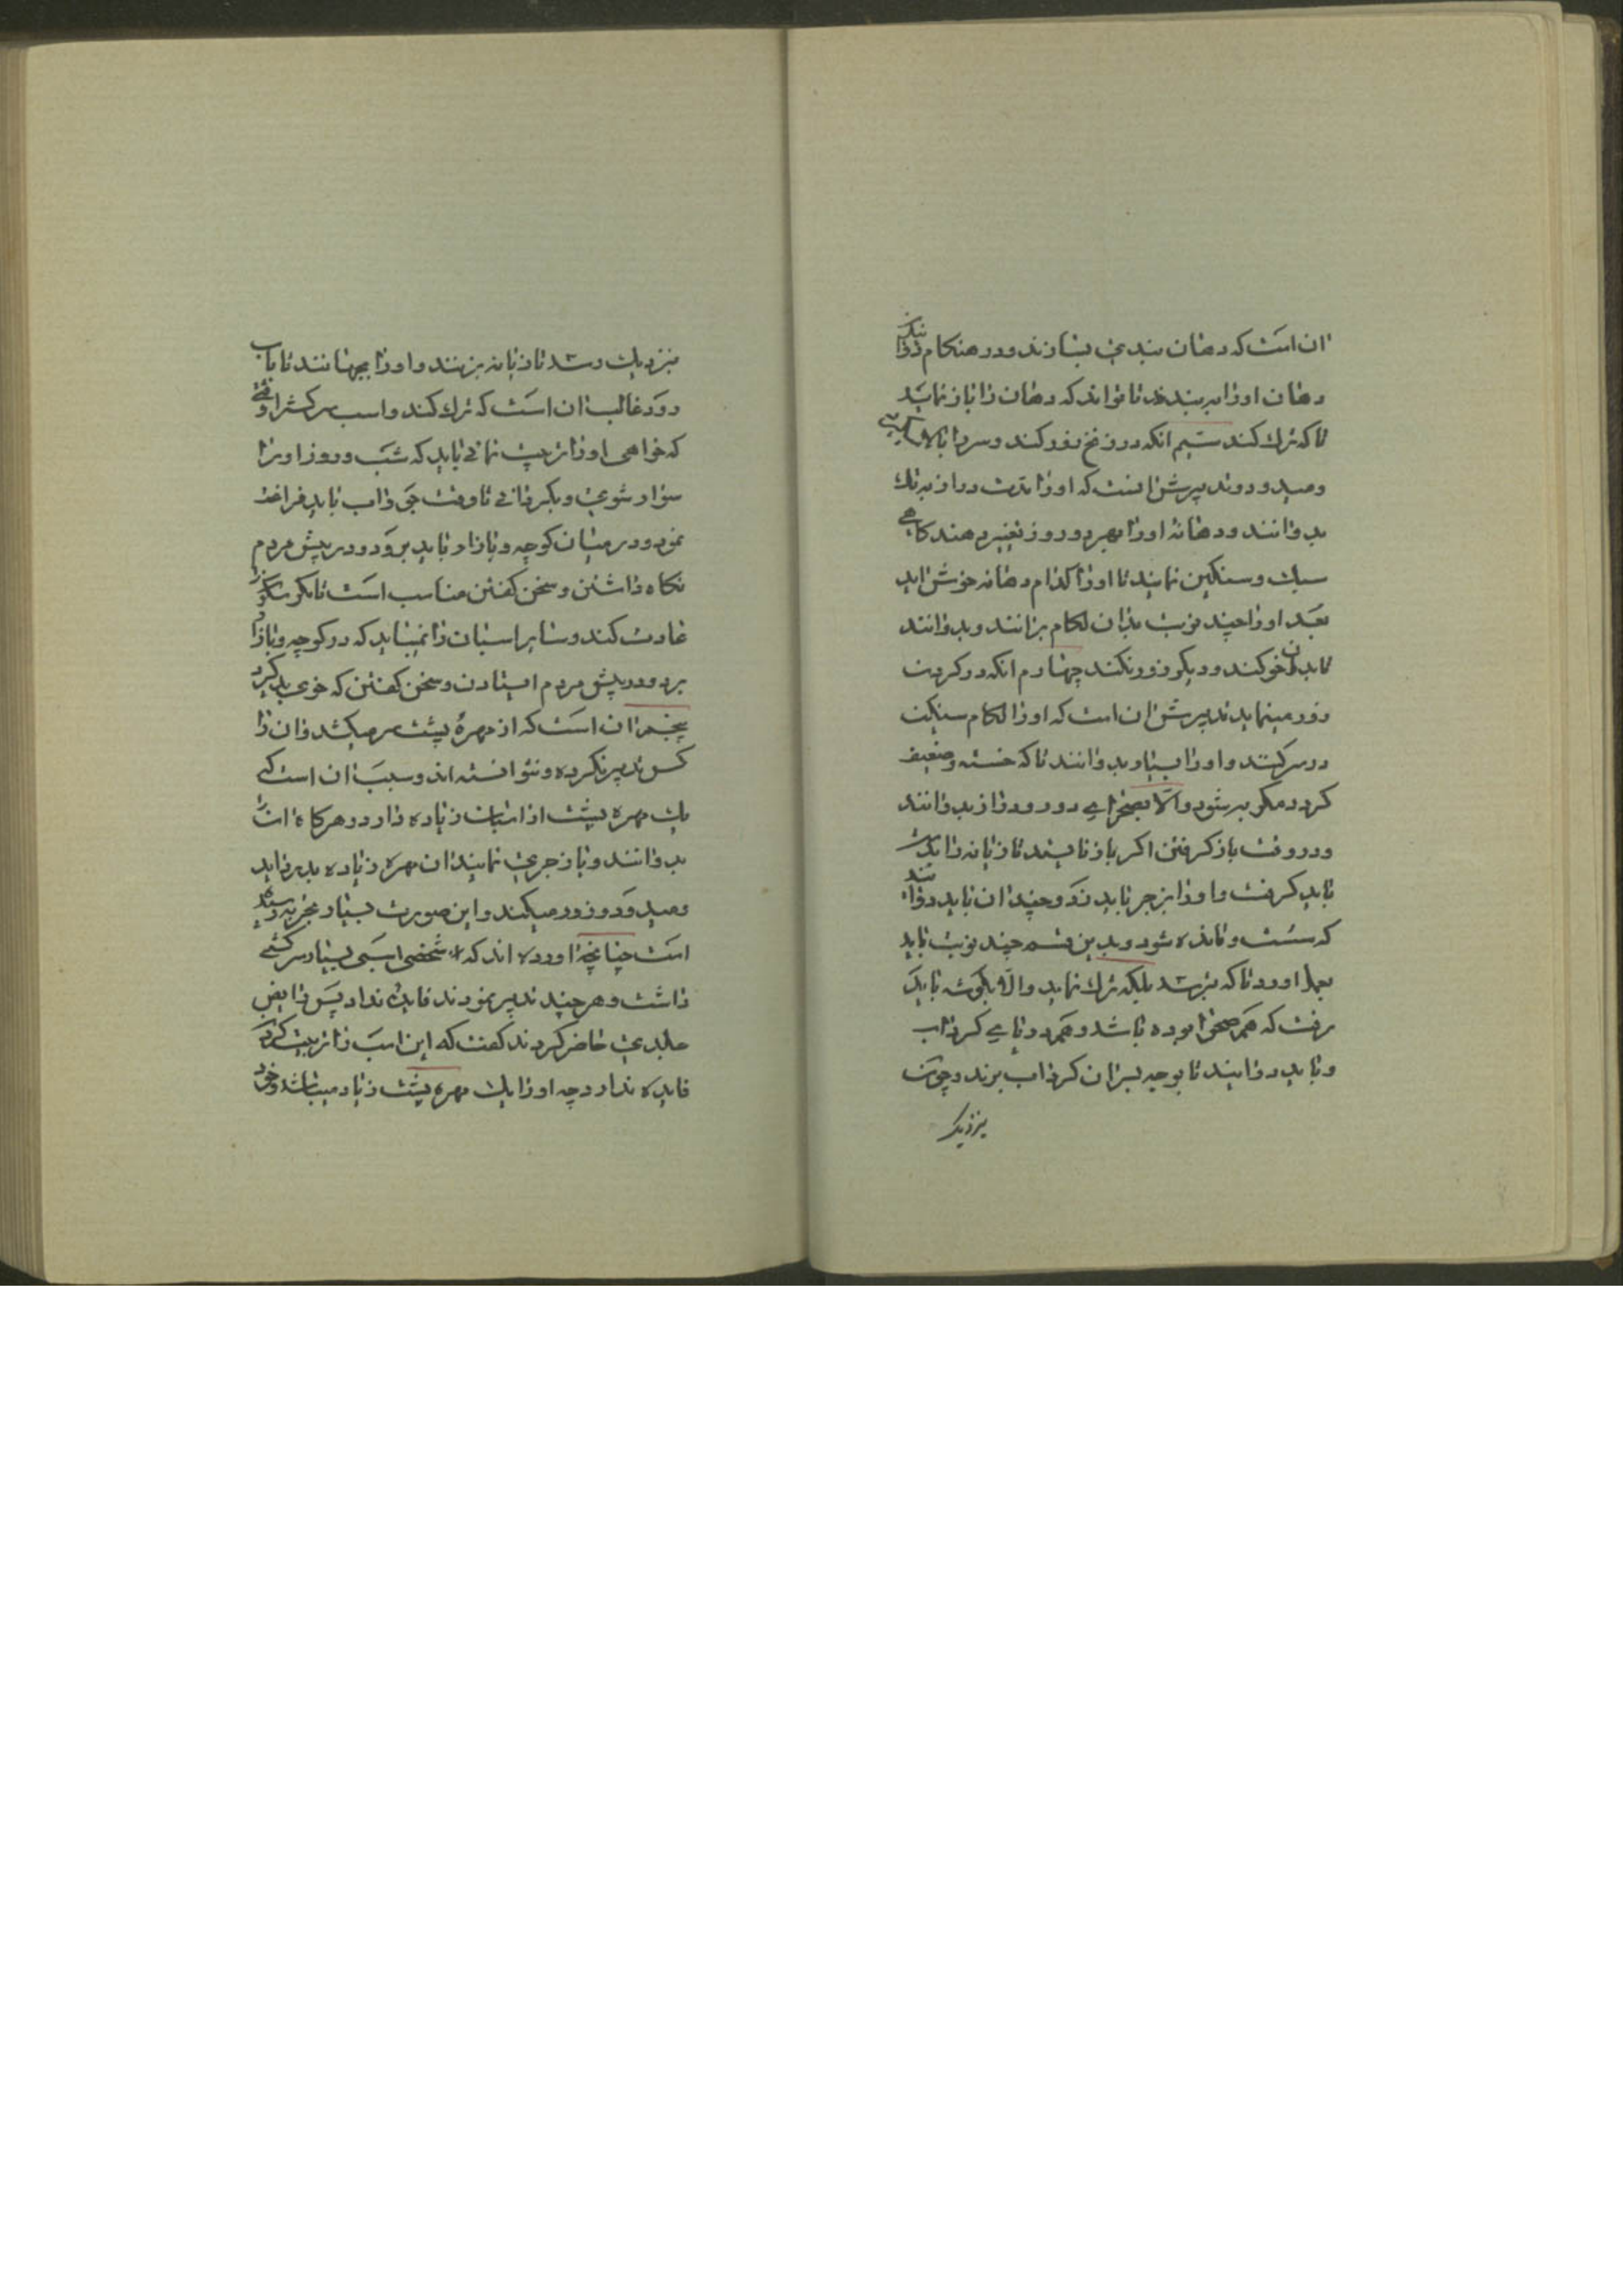 ان است که دهان بندی بسازند و در هنکام
دهان اورا ببندند تا نتواند که دهان را باز نماید
تا که ترک کند سیم انکه در زنخ زور کند و سر را بالا
و میدود تدبیرش انست که اورا مدت دراز به تک
بدوانند و دهانه اورا بهر دو روز تغییر دهند کاهی
سبک و سنکین نمایند تا اورا کدام دهانه خوش اید
بعد اورا چند نوبت بدان لکام برانند و بدوانند
تا بدان خو کند و دیکر زور نکند چهارم انکه در کردن
زور مینماید تدبیرش ان است که اورا لکام سنکین
در سر کنند و اورا بسیار بدوانند تا که خسته و ضعیف
کردد مکر به شود والا بصحرای دور و دراز بدوانند
و در وقت باز کرفتن اکر باز نایستد تازیانه را بدست
باید کرفت و اورا بزجر باید زد و چندان باید دواند
که سست و مانده شود و بدین قسم چند نوبت باید
بعمل اورد تا که بترسد بلکه ترک نماید والا بکوشه باید
رفت که هم صحرا بوده باشد و هم دریای کرداب
و باید دوانید تا بوجه بر ان کرداب برند و چون
نزدیک
نزدیک رسد تازیانه بزنند و اورا بجهانند تا باب
رود غالب ان است که ترک کند و اسب سرکش را وقتی
که خواهی اورا تربیت نمائی باید که شب و روز اورا
سوار شوی و بکردانی تا وقت جو و اب باید فراغت
نمود و در میان کوچه و بازار باید برود و در پیش مردم
نکاه داشتن و سخن کفتن مناسب است تا مکر
عادت کند و سایر اسبان را نمیباید که در کوچه و بازار
برد و در پیش مردم ایستادن و سخن کفتن که خوی بد کیرد
پنجم ان است که از مهره پشت سر میکشد و ان را
کس تدبیر نکرده و نتوانسته اند و سبب ان است که
یک مهره پشت از اسبان زیاده دارد و هرکاه انرا
بدوانند و باز جری نمایند ان مهره زیاده بدرد اید
و میدود و زور میکند و این صورت بسیار بتجربه رسیده
است چنانچه اورده اند که شخصی اسبی بسیار سرکشی
داشت و هر چند تدبیر نمودند فایده نداد پس رایض
جلدی حاضر کردند کفت که این اسب را تربیت کردن
فایده ندارد چه اورا یک مهره پشت زیاد میباشد و خود